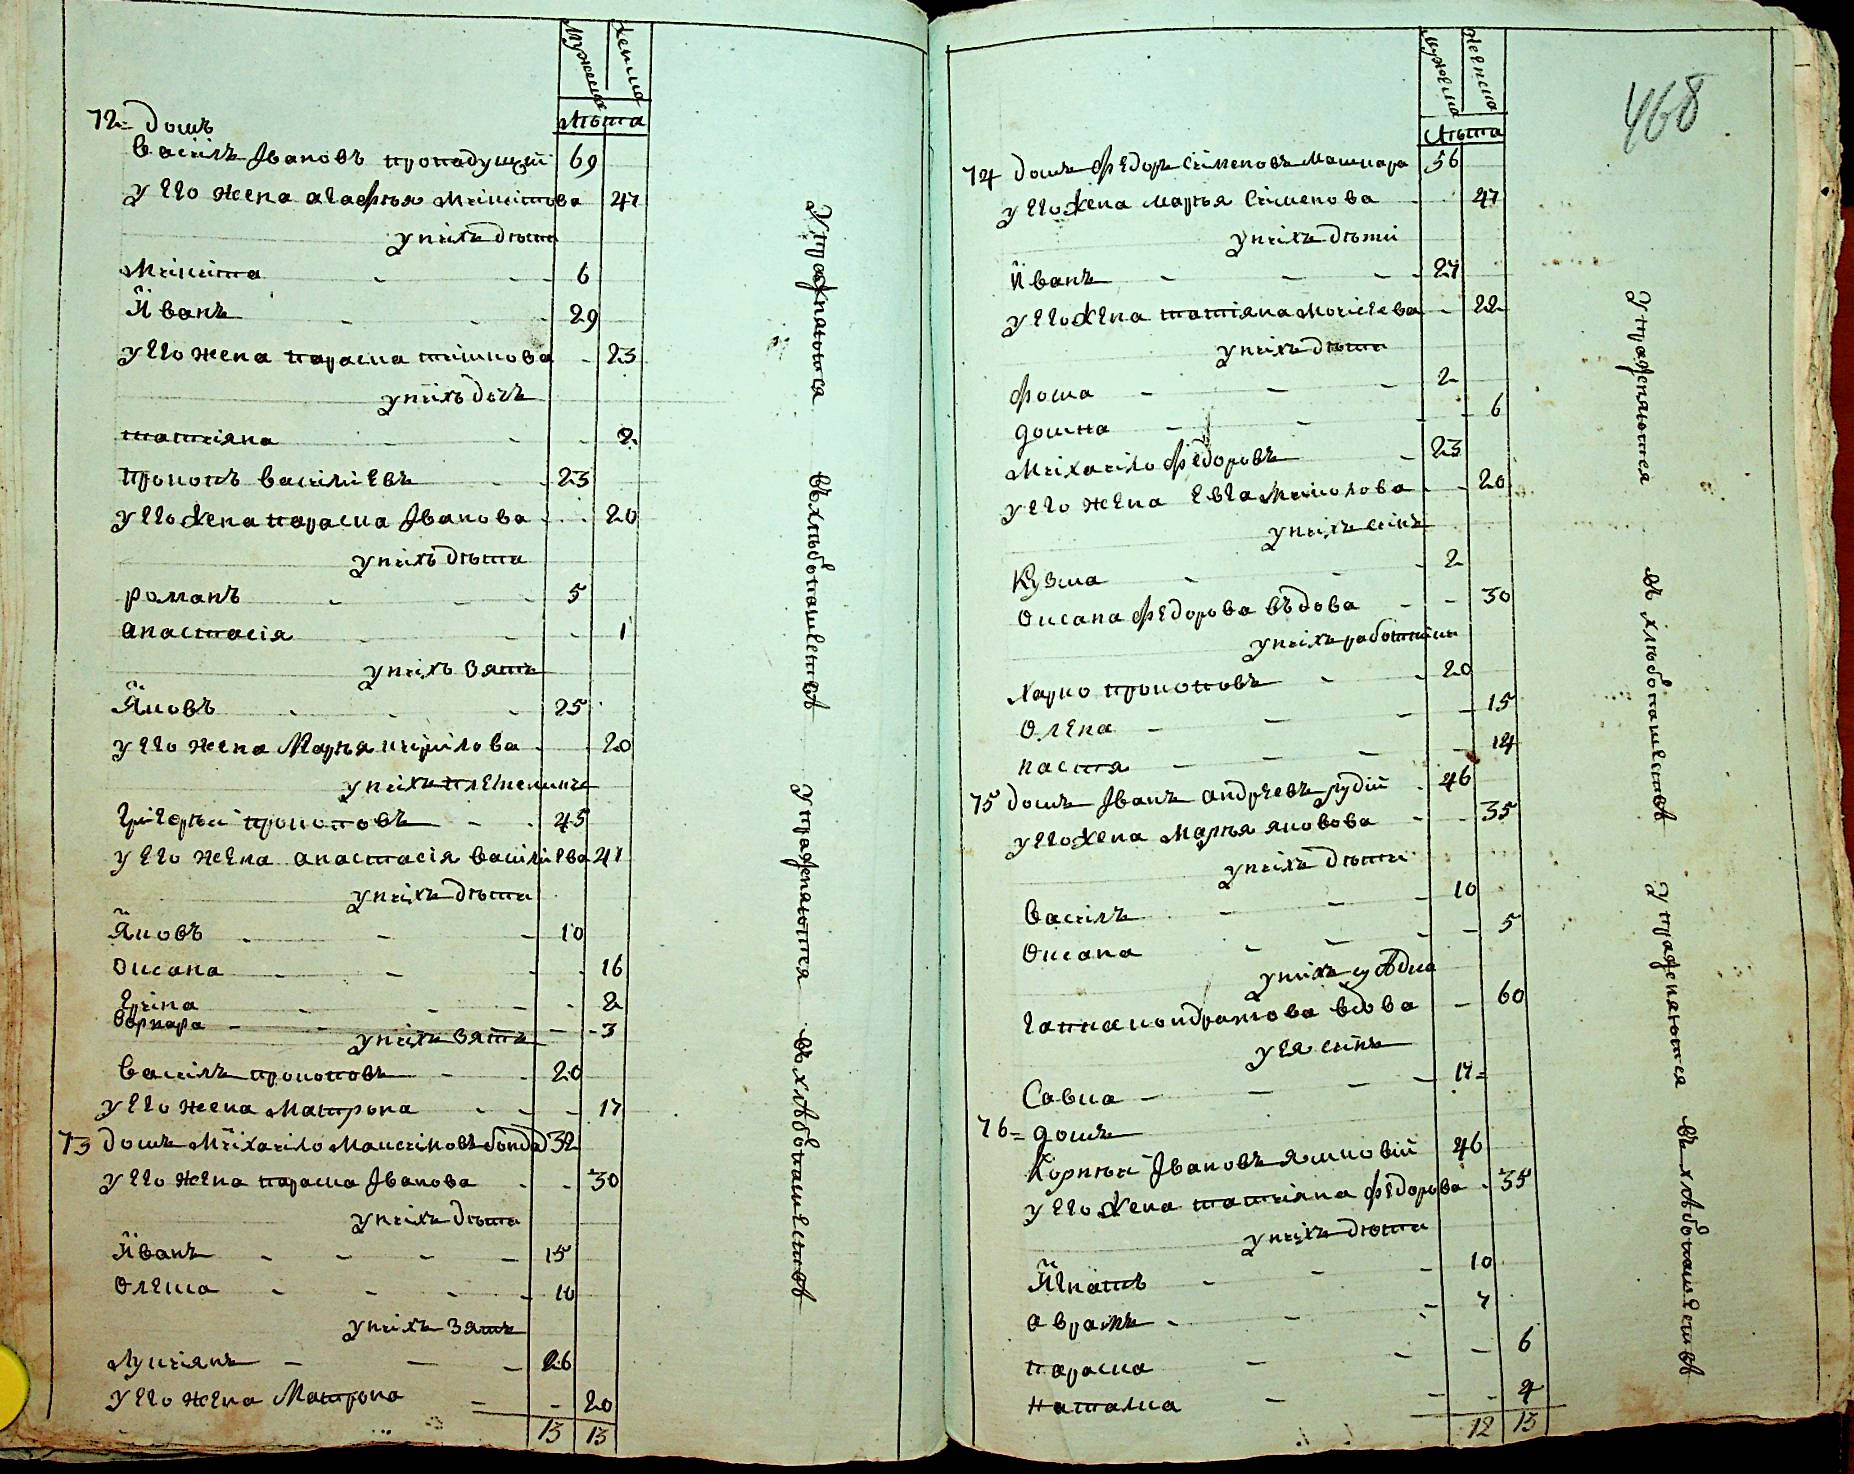 мужеска
женска
лѣта
72= домъ
Василь Івановъ пропадущій 69
у его жена агафѣя Микитова 47
у нихъ дѣти
Микита - - - 6
Иванъ - - - 29
у его жена параска - 23
у нихъ дочь
татияна - - - 2
Прокопъ василиевъ - - 23
у его жена параска Іванова - - 20
у нихъ дѣти
романъ - - - 5
анастасія - - - 1
у нихъ зять
Яковъ - - - 25
у его жена Марѣя кирилова - - 20
у нихъ племеникъ
григорѣи прокоповъ - - 45
у его жена анастасія василиева 41
у нихъ дѣти
Яковъ - - - 10
Оксана - - - 16
Ирина - - - 2
Варвара - - - 3
у нихъ зять
василь прокоповъ - - 20
у его жена Матрона - - - 17
73 домъ Михаило Максимовъ 32
у его жена параска Іванова - - 30
у нихъ дѣти
Иванъ - - - - 15
Олекса - - - - 10
у нихъ зять
Лукиянъ - - - 26
у его жена Матрона - - 20
13 13
Упражняются въ хлѣбопашествѣ
Упражняются въ хлѣбопашествѣ
468
мужеска
женска
лѣта
74 домъ федоръ Сименовъ Машкара 56
у его жена марѣя Сименова - - 47
у нихъ дѣти
Иванъ - - - - 27
у его жена татияна Мосиева - 22
у нихъ дѣти
фома - - - 2
домна - - - - 6
Михаило федоровъ - 23
у его жена Евга Миколова - - 20
у нихъ синъ
Кузма - - 2
Оксана федорова въдова - - 30
у нихъ работники
харко прокоповъ - - 20
Олена - - - - 15
настя - - - - 14
75 домъ Іванъ андрѣевъ рудій - 46
у его жена Марѣя яковова - - 35
у нихъ дѣти
Василь - - - 10
Оксана - - - - 5
у нихъ сусѣдка
ганна кондратова вдова - 60
у ея синъ
Савка - - - - 17=
76= домъ
Корнѣи Івановъ 46
у его жена татияна федорова - 35
у нихъ дѣти
Игнатъ - - - 10
аврамъ - - - 7
параска - - - 6
наталка - - - 4
12 13
Упражняются въ хлѣбопашествѣ
Упражняются въ хлѣбопашествѣ